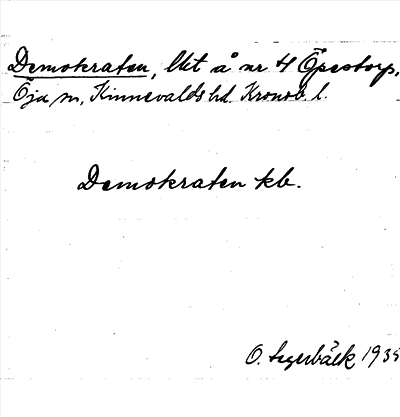 Demokraten, lht å nr 4 Öpestorp,
Öja sn, Kinnevalds hd. Kronob. l.
Demokraten kb.
O. Segerbäck 1935